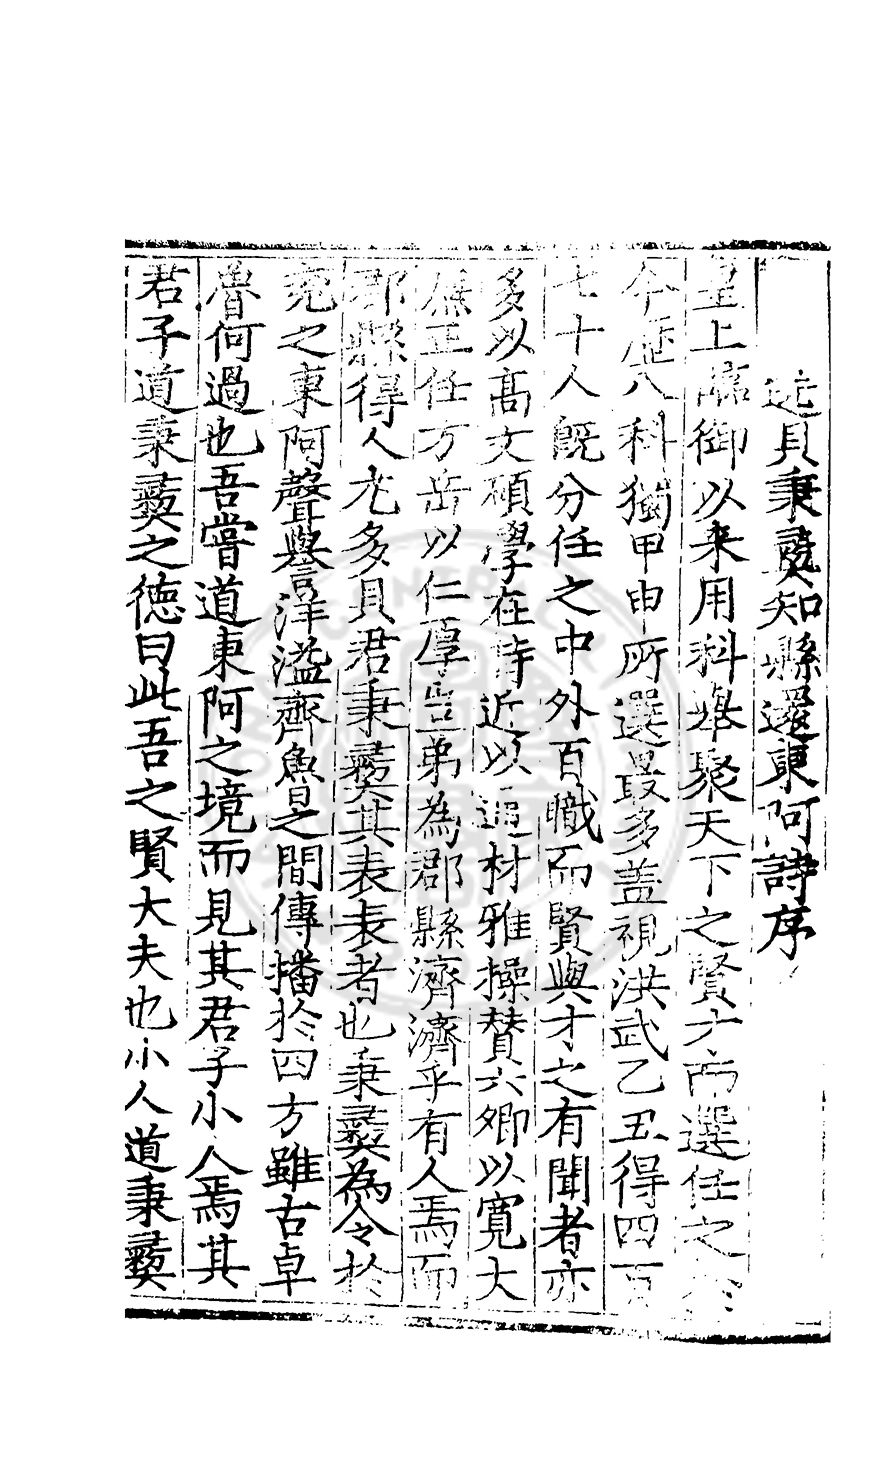 送貝秉彞知縣還東阿詩序
皇上臨御以来用科舉聚天下之賢才而選任之於
今歴八科獨甲申所選最多盖視洪武乙丑得四百
七十人旣分任之中外百職而賢與才之有聞者亦
多以高文碩學在侍近以通材雅操賛六卿以寛大
廉正任方岳以仁厚豈弟為郡縣濟濟乎有人焉而
郡縣得人尤多貝君秉彞其表表者也秉彞為令於
兖之東阿聲譽洋溢齊魯之間傳播於四方雖古卓
魯何過也吾嘗道東阿之境而見其君子小人焉其
君子道秉彞之徳曰此吾之賢大夫也小人道秉彞